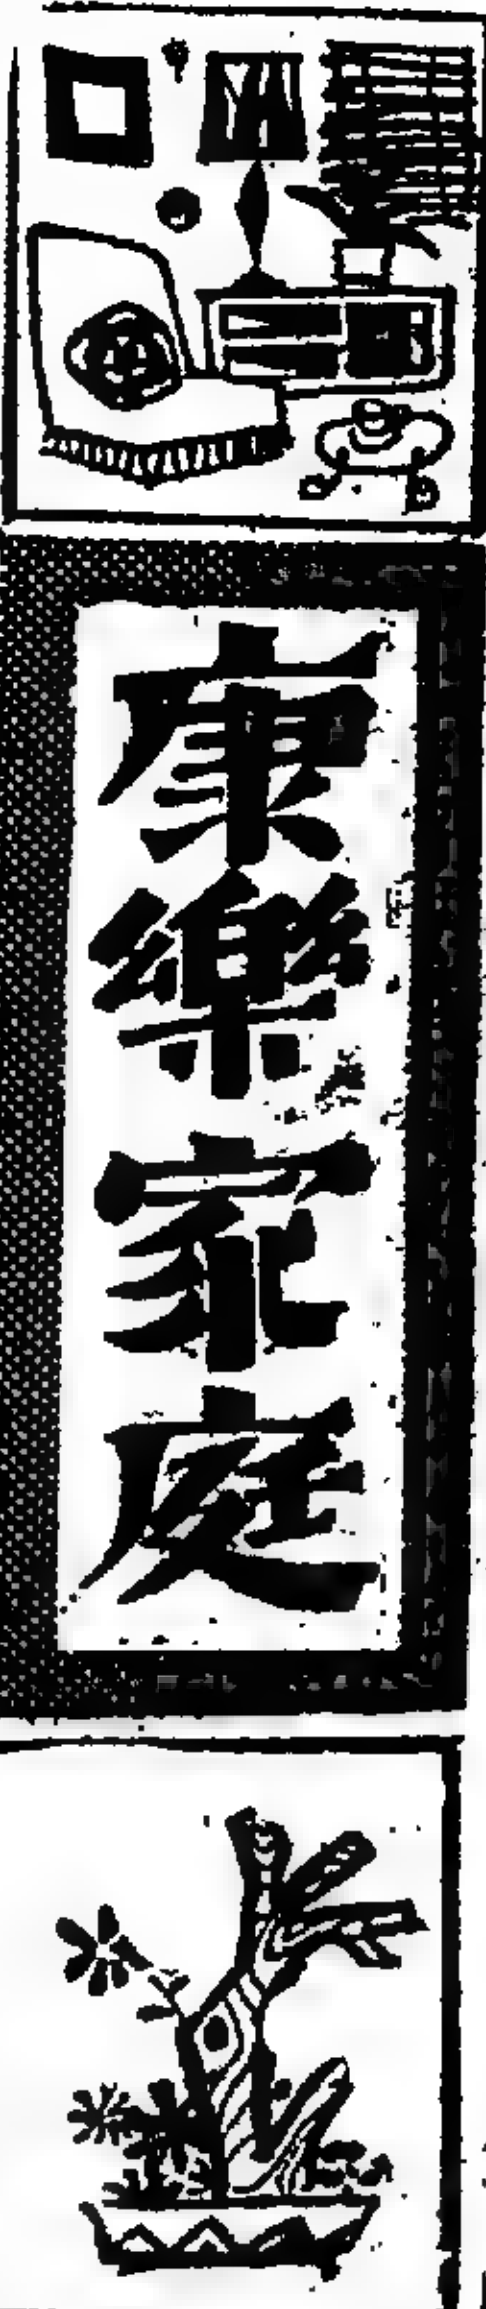 康樂家庭